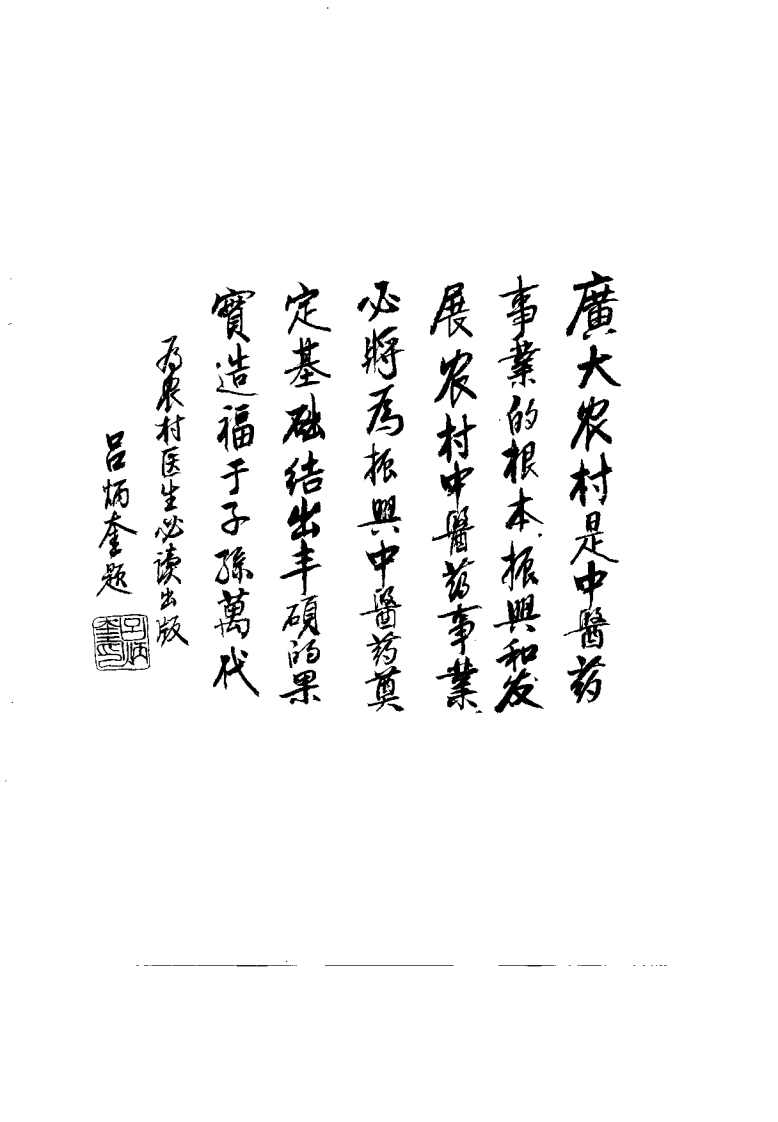 廣大农村是中醫药
事業的根本,振興和发
展农村中醫药事業,
必將為振興中醫药奠
定基础结出丰碩的果
實造福于子孫萬代
为农村医生必读出版
吕炳奎题
吕炳奎印